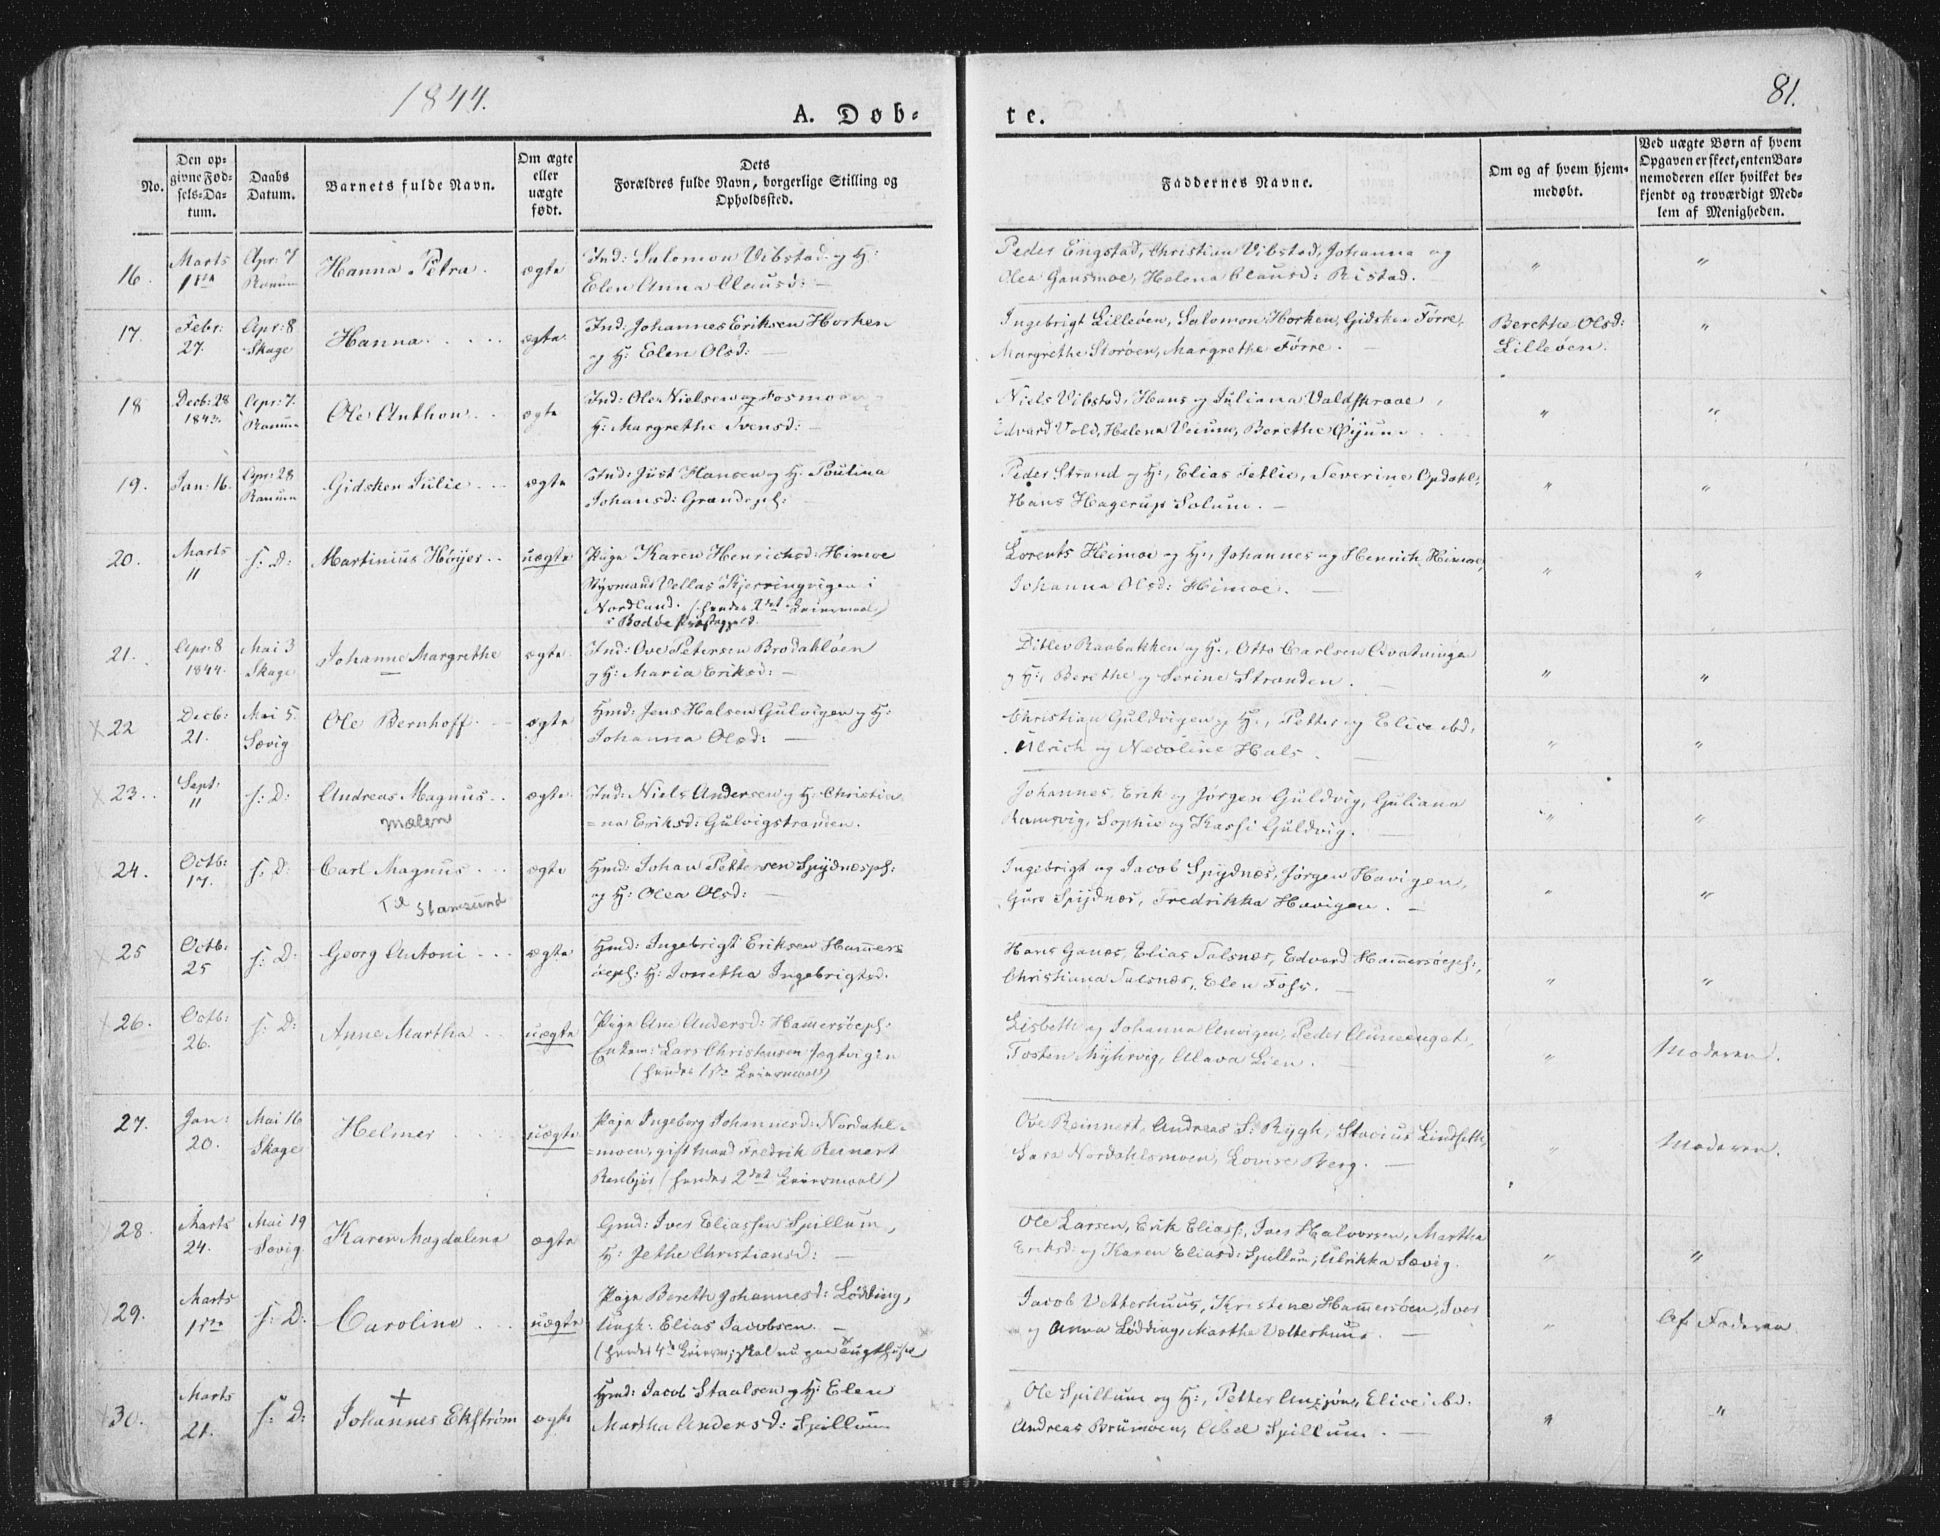 1844.
81.
A. Døb-
te.
No.
Den op-
givne Fød-
sels-Da-
tum.
Daabs
Datum.
Barnets fulde Navn.
Om ægte
eller
uægte
født.
Dets
Forældres fulde Navn, borgerlige Stilling og
Opholdssted.
Faddernes Navne.
Om og af hvem hjem-
medøbt.
Ved uægte Børn af hvem
Opgaven er skeet, enten Bar-
nemoderen eller hvilket be-
kjendt og troværdigt Med-
lem af Menigheden.
16.
Marts
1ste
Apr: 7
Ranum
Hanna Petra.
ægte
Ind: Salomon Vibstad og H:
Elen Anna Clausd: —
Peder Engstad, Christian Vibstad, Johanna og
Olea Gansmoe, Helena Clausd: Ristad.
"
"
17.
Febr:
27.
Apr: 8
Skage
Hanna . . . .
ægte
Ind: Johannes Eriksen Horken
og H: Elen Olsd: —
Ingebrigt Lilleøen, Salomon Horken, Gidsken Førre,
Margrethe Storøen, Margrethe Førre. —
Berethe Olsd:
Lilleøen.
"
18
Decb: 28
1843.
Apr: 7.
Ranum
Ole Anthon . .
ægte
Ind: Ole Nielsen og Fosmoen
H: Margrethe Svensd: —
Niels Vibstad, Hans og Juliana Valdskraae,
Edvard Vold, Helena Veium, Berethe Øyum
"
"
19.
Jan: 16.
Apr: 28
Ranum
Gidsken Julie . .
ægte
Ind: Just Hansen og H: Poulina
Johansd: Grandepl:
Peder Strand og H:, Elias Tetlie, Severine Opdahl,
Hans Hagerup Solum. —
"
"
20.
Marts
11
s: D:
Martinius Høyer . .
uægte
Pige Karen Henrichsd: Himoe
Styrmand Vellas Skjerringvigen i
Nordland. (hendes 2det Leiermaal)
i Bodøe Præstegjeld.
Lorents Heimoe og H:, Johannes og Henrich Himoe,
Johanna Olsd: Himoe. —
"
"
21.
Apr: 8
1844.
Mai 3
Skage
Johanne Margrethe
ægte
Ind: Ove Petersen Brodahløen
og H: Maria Eriksd: —
Ditlev Raabakken og H., Otto Carlsen Avatninge
og H:, Berethe og Serine Stranden. —
"
"
22
Decb:
21.
Mai 5.
Sævig
Ole Bernhoff. —
ægte
Hmd: Jens Halsen Gulvigen og H:
Johanna Olsd: —
Christian Guldvigen og H:, Petter og Elice ibd,
Ulrich og Necoline Hals.
"
"
23. .
Sept:
11
s: D:
Andreas Magnus . .
Mælen
ægte
Ind: Niels Andersen og H: Christia
=na Eriksd: Gulvigstranden.
Johannes, Erik og Jørgen Guldvig, Guliana
Ramsvig, Sophie og Kassi Guldvig. —
"
"
24.
Octb:
17.
s: D:
Carl Magnus . .
Til Stamsund
ægte
Hmd: Johan Pettersen Spydnespl:
og H: Olea Olsd: —
Ingebrigt og Jacob Spydnæs, Jørgen Havigen,
Guro Spydnæs, Fredrikka Havigen. —
"
"
25
Octb:
25
s: D:
Georg Antoni . . .
ægte
Hmd: Ingebrigt Eriksen Hammers
øepl: H: Jonetha Ingebrigtsd.
Hans Ganæs, Elias Salsnæs, Edvard Hammersøepl:,
Christiana Salsnæs, Elen Foss. —
"
"
26.
Octb:
26.
s: D:
Anne Martha . .
uægte
Pige Ane Andersd: Hammersøepl:
Enkem: Lars Christensen Jægtvigen
(hendes 1ste Leiermaal)
Lisbeth og Johanna Anvigen, Peder Auneenget,
Tosten Myhrvig, Alava Lien. —
"
Moderen.
27.
Jan:
20.
Mai 16
Skage
Helmer . . . .
uægte
Pige Ingeborg Johannesd: Nordahl-
=moen, gift Mand Fredrik Reinert
Renbjør (hendes 2det Leiermaal)
Ove Reinnert, Andreas S: Rygh, Stacius Lindseth,
Sara Nordahlsmoen, Lovise Berg. —
"
Moderen.
28.
Marts
24.
Mai 19
Sævig
Karen Magdalena
ægte
Gmd: Iver Eliassen Spillum,
H: Jethe Christiansd: —
Ole Larsen, Erik Eliass:, Iver Halvorsen, Martha
Eriksd: og Karen Eliasd: Spillum; Ulrikka Sævig.
"
"
29.
Marts
1ste
s: D:
Carolina . . .
uægte
Pige Bereth Johannesd: Lødding,
Ungk: Elias Jacobsen. —
(hendes 4de Leierm; skal nu paa Tugthuset
Jacob Vetterhuus, Kristene Hammersøen, Iver
og Anna Lødding, Marthe Vatterhuus. —
"
Af Faderen
30.
Marts
21.
s: D:
+
Johannes Ekstrøm
ægte
Hmd: Jacob Staalsen og H: Elen
Martha Andersd: Spillum
Ole Spillum og H:, Petter Ansjøn, Elice ibd.
Andreas Brumoen, Abel Spillum. —
"
"